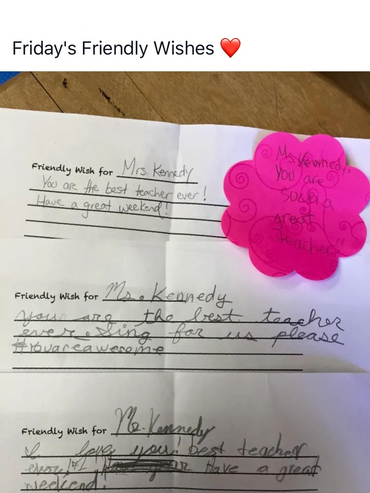 Friday's Friendly Wishes ❤️
Friendly Wish for Mrs. Kennedy
You are the best teacher ever!
Have a great weekend!
You are
a
great
teacher!!
Friendly Wish for Ms. Kennedy
you are the best teacher
ever sling for us please
#rouareawesome
Friendly Wish for Ms. Kennedy
I love you! best teacher
Have a great
weekend!